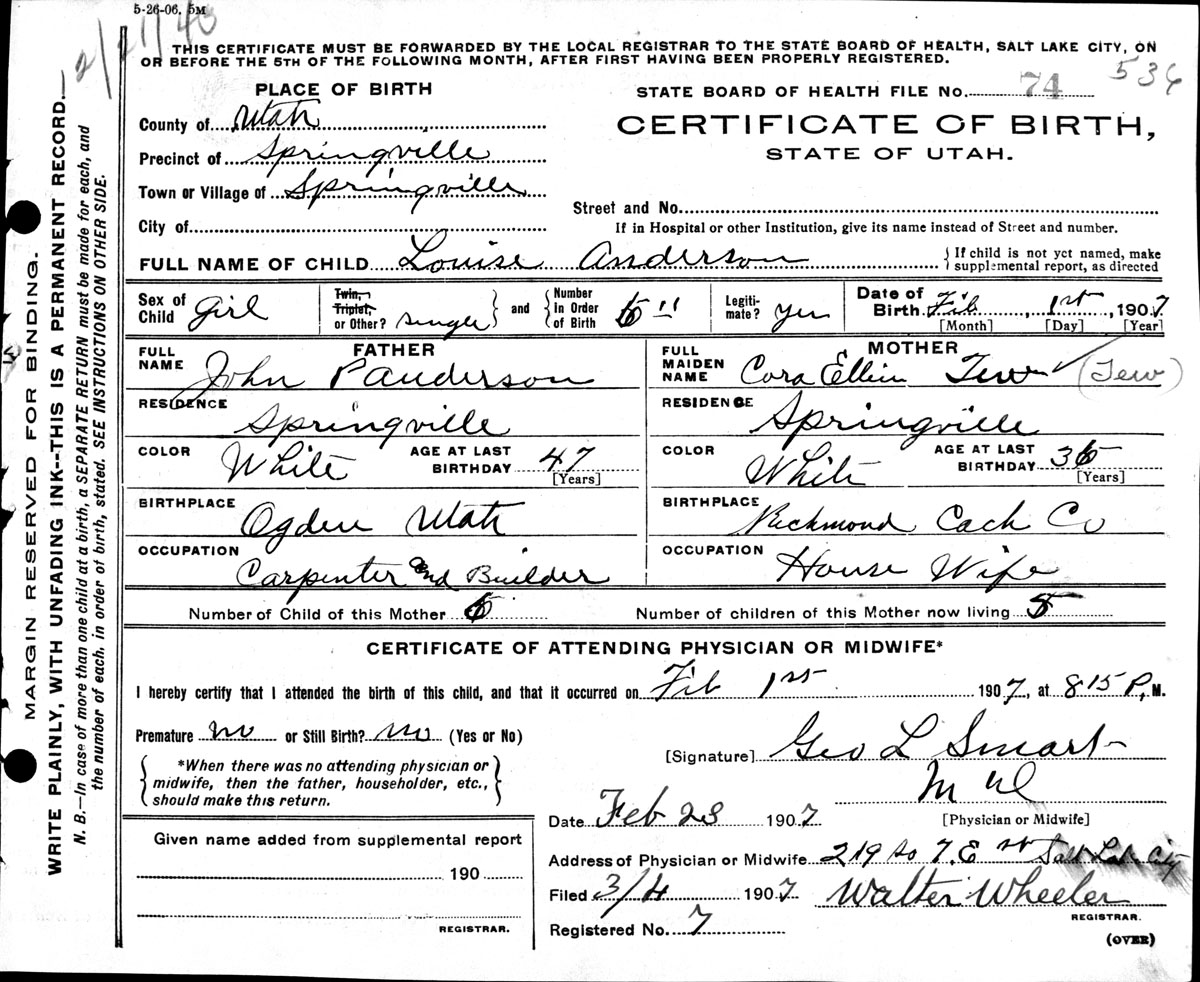 5-26-06. 5M
12/21/43
THIS CERTIFICATE MUST BE FORWARDED BY THE LOCAL REGISTRAR TO THE STATE BOARD OF HEALTH, SALT LAKE CITY, ON
OR BEFORE THE 5TH OF THE FOLLOWING MONTH, AFTER FIRST HAVING BEEN PROPERLY REGISTERED.
536
PLACE OF BIRTH
STATE BOARD OF HEALTH FILE No. 74
County of Utah
CERTIFICATE OF BIRTH,
STATE OF UTAH.
Precinct of Springville
Town or Village of Springville
Street and No.
City of
If in Hospital or other Institution, give its name instead of Street and number.
FULL NAME OF CHILD Louise Anderson
{ If child is not yet named, make
supplemental report, as directed
Sex of Child Girl
Twin, Triplet, or Other? Single } and { Number In Order of Birth 6"
Legitimate? Yes
Date of Birth Feb, 1st, 1907
[Month] [Day] [Year]
FATHER
FULL NAME John P Anderson
RESIDENCE Springville
COLOR White AGE AT LAST BIRTHDAY 47
[Years]
BIRTHPLACE Ogden Utah
OCCUPATION Carpenter and Builder
MOTHER
FULL MAIDEN NAME Cora Ellin Tew (Tew)
RESIDENCE Springville
COLOR White AGE AT LAST BIRTHDAY 36
[Years]
BIRTHPLACE Richmond Cach Co
OCCUPATION House Wife
Number of Child of this Mother 6 Number of children of this Mother now living 5
CERTIFICATE OF ATTENDING PHYSICIAN OR MIDWIFE*
I hereby certify that I attended the birth of this child, and that it occurred on Feb 1st 1907, at 815 P, M.
Premature no or Still Birth? no (Yes or No)
[Signature] Geo L Smart
M D
[Physician or Midwife]
{ *When there was no attending physician or
midwife, then the father, householder, etc.,
should make this return. }
Date Feb 23 1907
Given name added from supplemental report
190
REGISTRAR.
Address of Physician or Midwife 219 So 7. E st Salt Lake City
Filed 3/4 1907 Walter Wheeler
REGISTRAR.
Registered No. 7
(OVER)
MARGIN RESERVED FOR BINDING.
WRITE PLAINLY, WITH UNFADING INK--THIS IS A PERMANENT RECORD.
N. B.—In case of more than one child at a birth, a SEPARATE RETURN must be made for each, and
the number of each, in order of birth, stated. SEE INSTRUCTIONS ON OTHER SIDE.